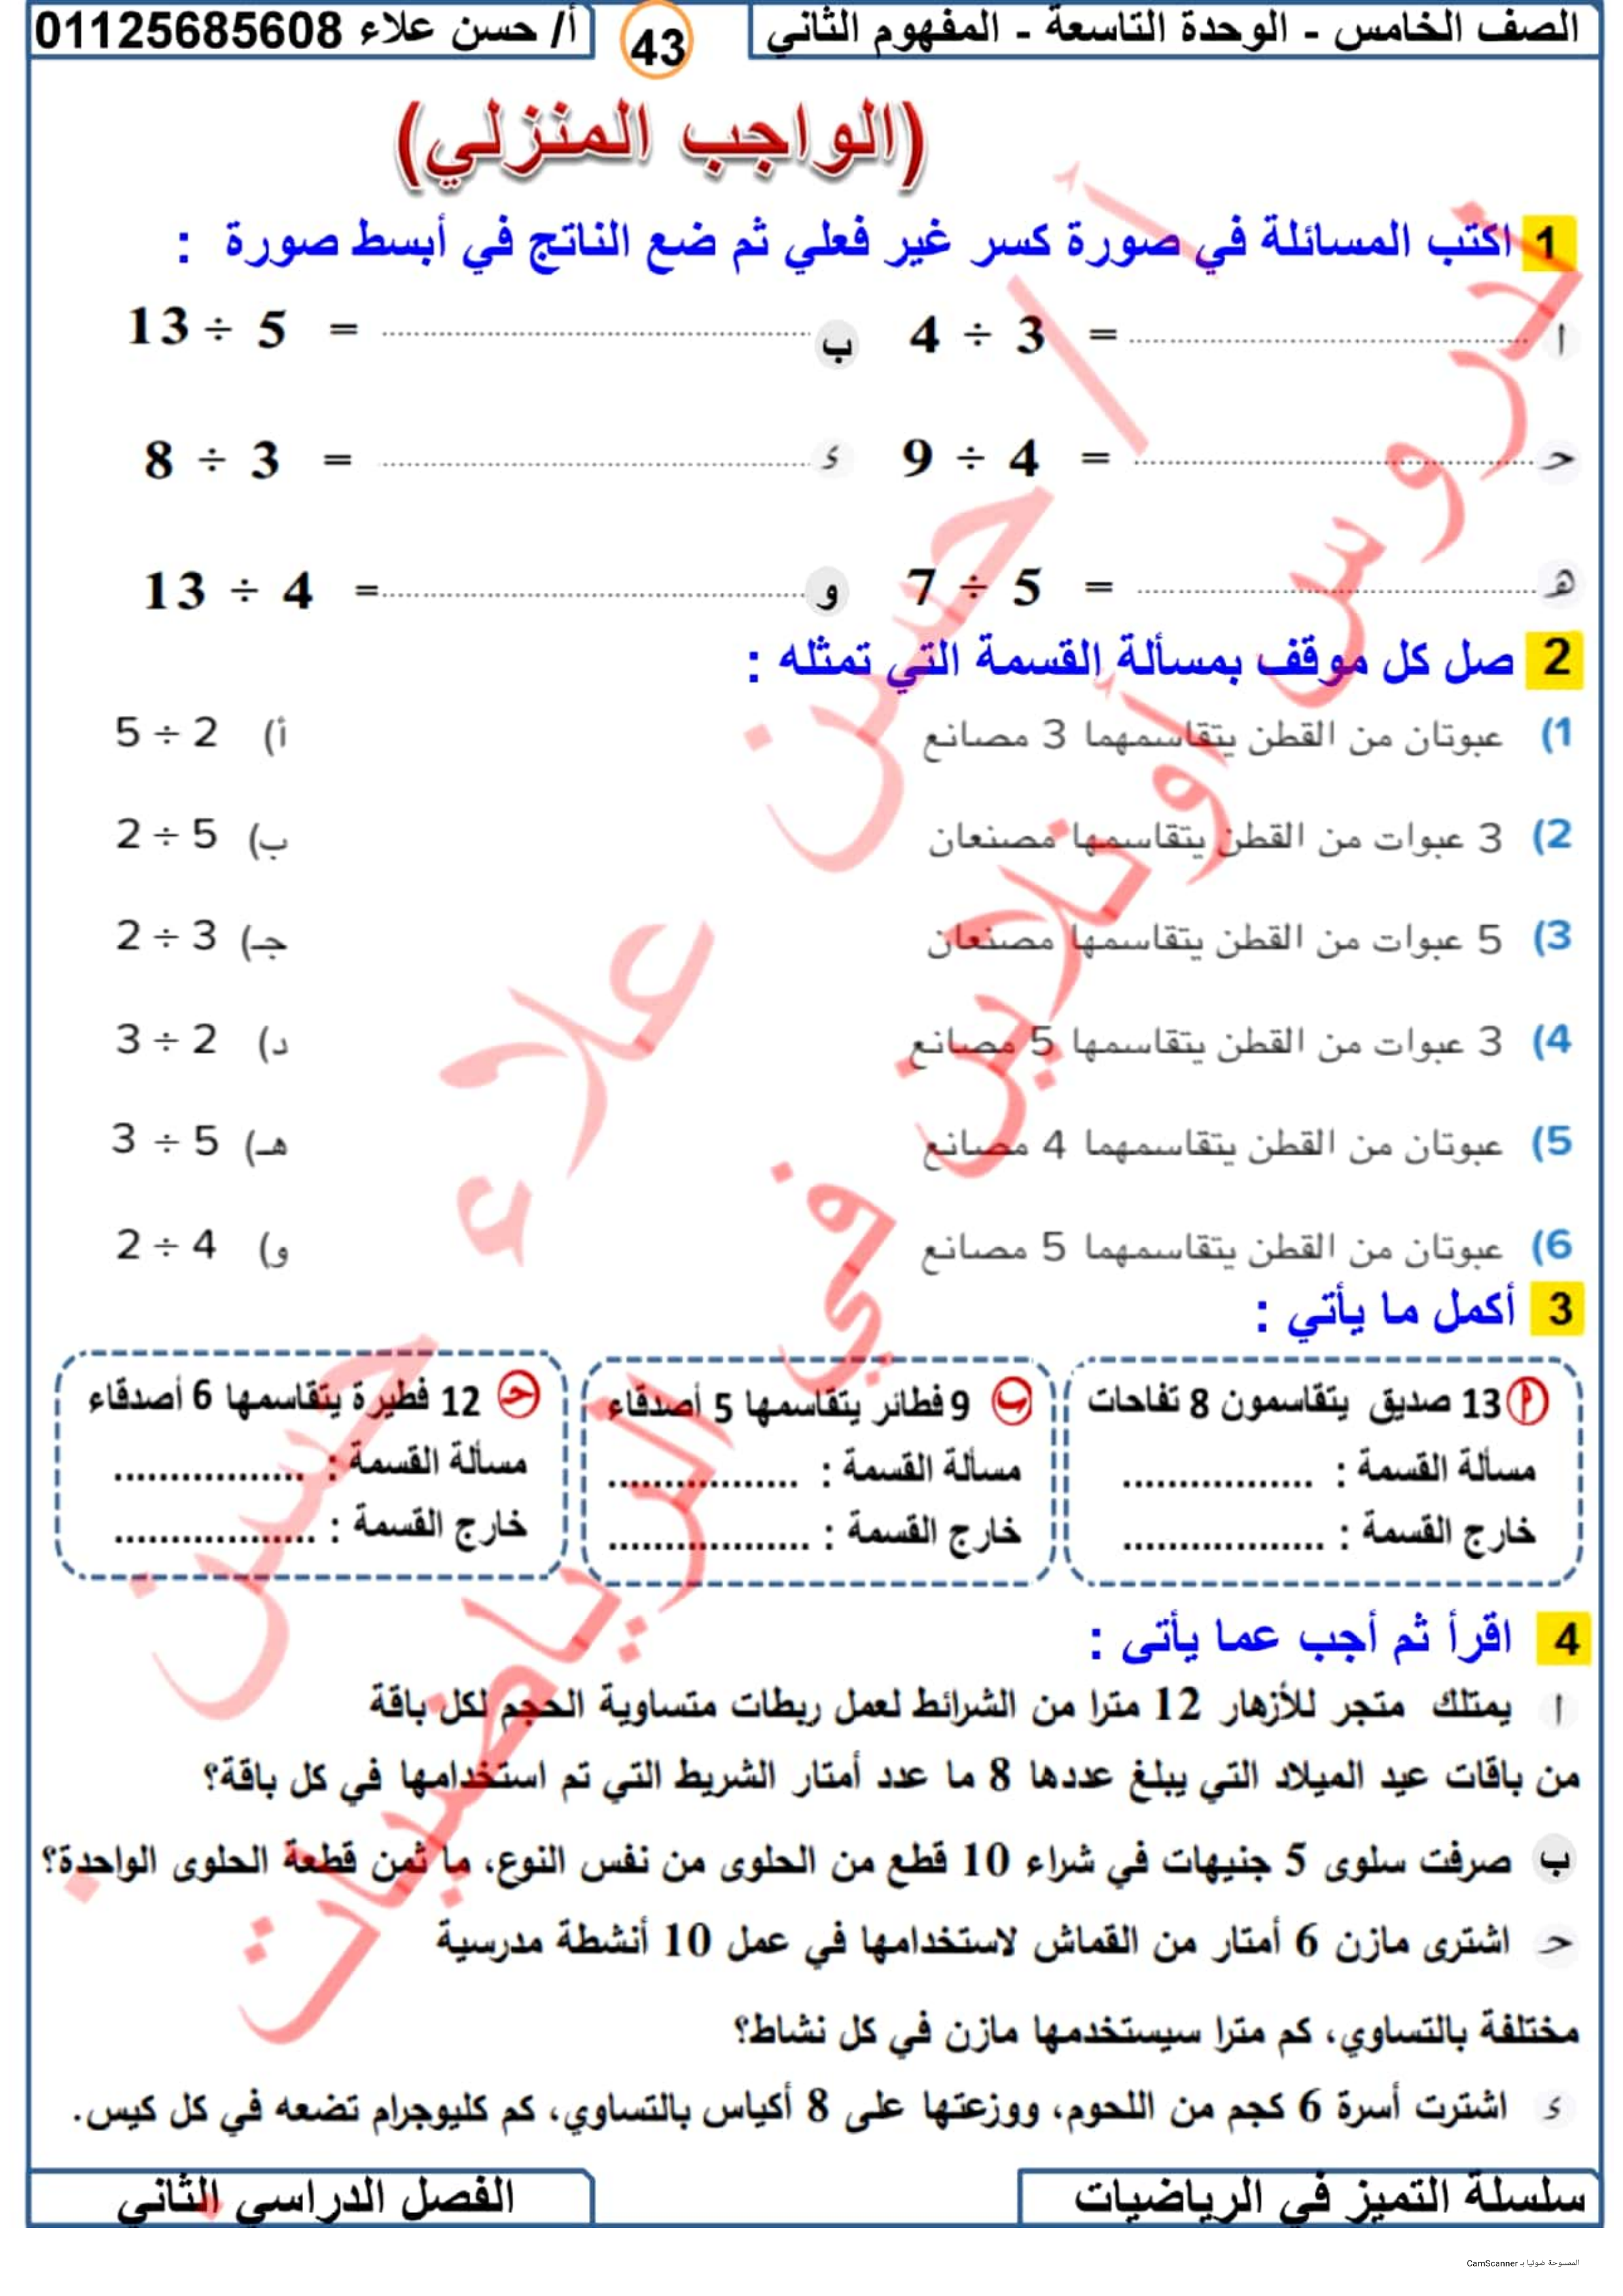 الصف الخامس - الوحدة التاسعة - المفهوم الثاني
43
أ/ حسن علاء 01125685608
(الواجب المنزلي)
1 اكتب المسائلة في صورة كسر غير فعلي ثم ضع الناتج في أبسط صورة :
ا 4 ÷ 3 = ........................
ب 13 ÷ 5 = ........................
حـ 9 ÷ 4 = ........................
ء 8 ÷ 3 = ........................
هـ 7 ÷ 5 = ........................
و 13 ÷ 4 = ........................
2 صل كل موقف بمسألة القسمة التي تمثله :
1) عبوتان من القطن يتقاسمهما 3 مصانع
أ) 5 ÷ 2
2) 3 عبوات من القطن يتقاسمها مصنعان
ب) 2 ÷ 5
3) 5 عبوات من القطن يتقاسمها مصنعان
جـ) 2 ÷ 3
4) 3 عبوات من القطن يتقاسمها 5 مصانع
د) 3 ÷ 2
5) عبوتان من القطن يتقاسمهما 4 مصانع
هـ) 3 ÷ 5
6) عبوتان من القطن يتقاسمهما 5 مصانع
و) 2 ÷ 4
3 أكمل ما يأتي :
م 13 صديق يتقاسمون 8 تفاحات
مسألة القسمة : .................
خارج القسمة : ..................
ب 9 فطائر يتقاسمها 5 أصدقاء
مسألة القسمة : .................
خارج القسمة : ..................
حـ 12 فطيرة يتقاسمها 6 أصدقاء
مسألة القسمة : .................
خارج القسمة : ..................
4 اقرأ ثم أجب عما يأتى :
ا يمتلك متجر للأزهار 12 مترا من الشرائط لعمل ربطات متساوية الحجم لكل باقة
من باقات عيد الميلاد التي يبلغ عددها 8 ما عدد أمتار الشريط التي تم استخدامها في كل باقة؟
ب صرفت سلوى 5 جنيهات في شراء 10 قطع من الحلوى من نفس النوع، ما ثمن قطعة الحلوى الواحدة؟
حـ اشترى مازن 6 أمتار من القماش لاستخدامها في عمل 10 أنشطة مدرسية
مختلفة بالتساوي، كم مترا سيستخدمها مازن في كل نشاط؟
ء اشترت أسرة 6 كجم من اللحوم، ووزعتها على 8 أكياس بالتساوي، كم كليوجرام تضعه في كل كيس.
سلسلة التميز في الرياضيات
الفصل الدراسي الثاني
أ / حسن علاء
دروس أونلاين في الرياضيات
حسن
الممسوحة ضوئيا بـ CamScanner